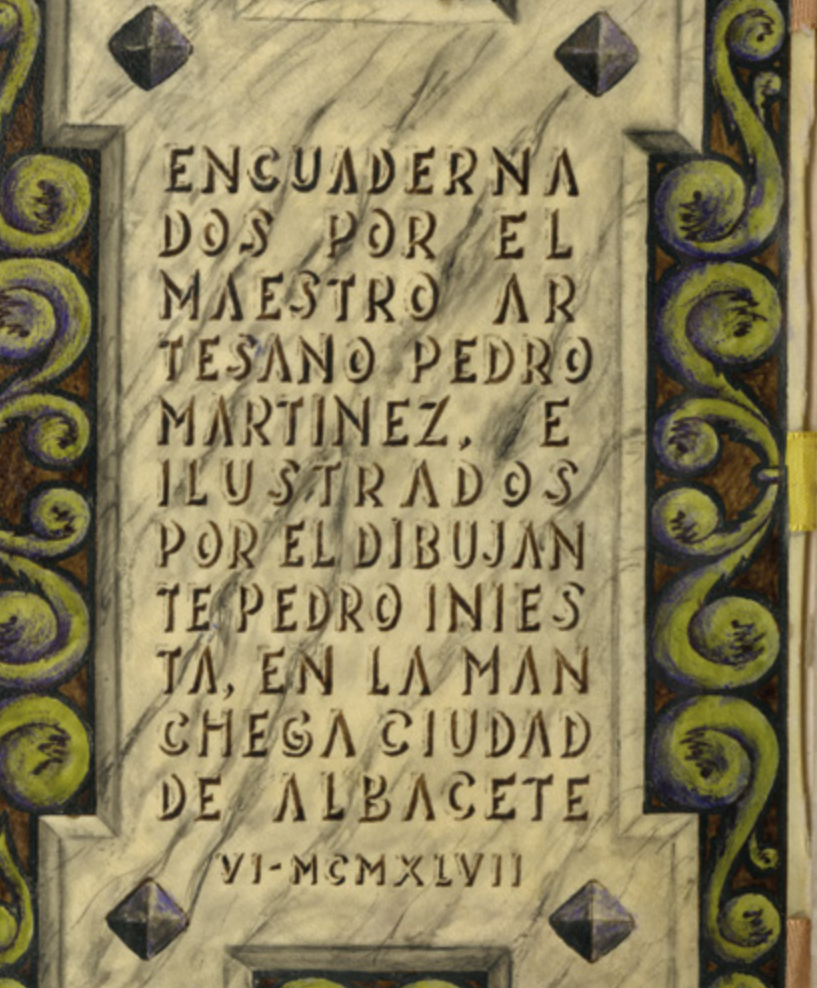 ENCUADERNA
DOS POR EL
MAESTRO AR
TESANO PEDRO
MARTINEZ, E
ILUSTRADOS
POR EL DIBUJAN
TE PEDRO INIES
TA, EN LA MAN
CHEGA CIUDAD
DE ALBACETE
VI-MCMXLVII